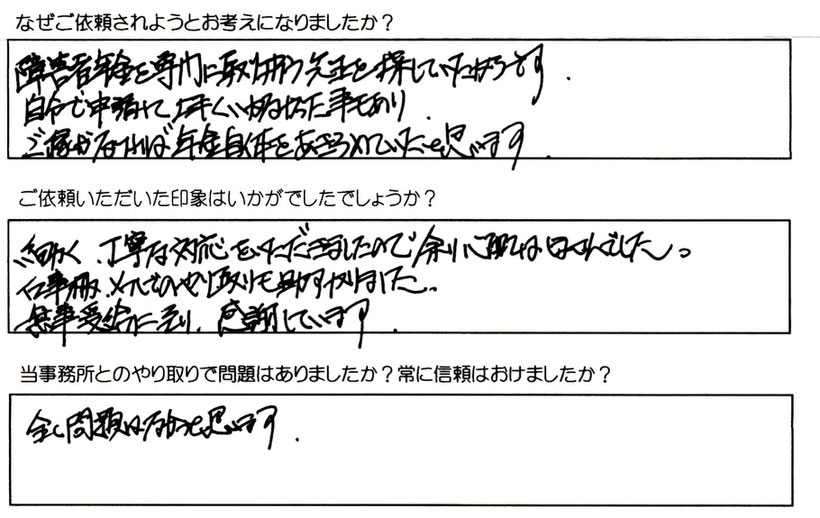 なぜご依頼されようとお考えになりましたか？
障害者年金を専門に取り扱う先生を探していたからです.
自分で申請して上手くいかなかった事もあり.
ご縁がなければ年金自体をあきらめていたと思います.
ご依頼いただいた印象はいかがでしたでしょうか？
細かく、丁寧な対応をいただきましたので余り心配はしませんでした。
仕事柄、メールでのやり取りも助かりました。
無事受給に至り、感謝しています.
当事務所とのやり取りで問題はありましたか？常に信頼はおけましたか？
全く問題はなかったと思います.